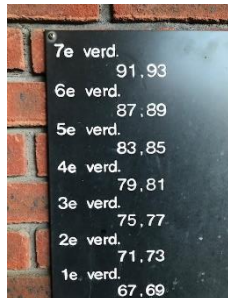 7e verd.
91,93
6e verd.
87,89
5e verd.
83,85
4e verd.
79,81
3e verd.
75,77
2e verd.
71,73
1e verd.
67,69